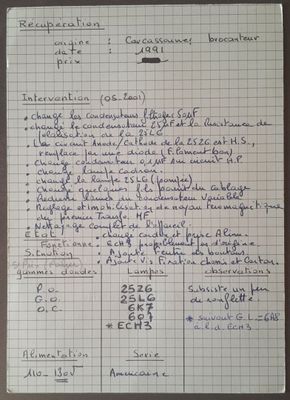 Récupération
origine : Carcassonne, brocanteur
date : 1991
prix :
Intervention (05-2001)
• change les condensateurs filtrage 50µF
• change le condensateur 25µF et la résistance de
polarisation de la 25L6
• La circuit Anode/Cathode de la 25Z6 est H.S.,
remplacé par une diode (Filament bon)
• Change condensateur 0,1MF au circuit H.P.
• Change lampe cadran.
• change la lampe 25L6 (pompée)
• Change quelques fils pourri du cablage
• lames du condensateur variable
• Réglage et noyau ferromagnétique
du premier Transfo MF
• Nettoyage complet de l'appareil
• change cordon et passe Alim.
Etat
Fonctionne : ECH3 probablement pas d'origine
Situation : • Ajouté des boutons
• Ajouté Vs Fixation chassis et Carton.
gammes d'ondes Lampes observations
P.O. 25Z6 Subsiste un peu
G.O. 25L6 de ronflette.
O.C. 6K7
6Q7 * suivant G.L = 6A8
* ECH3 à l.d. ECH3
Alimentation Serie
110-130V Americaine